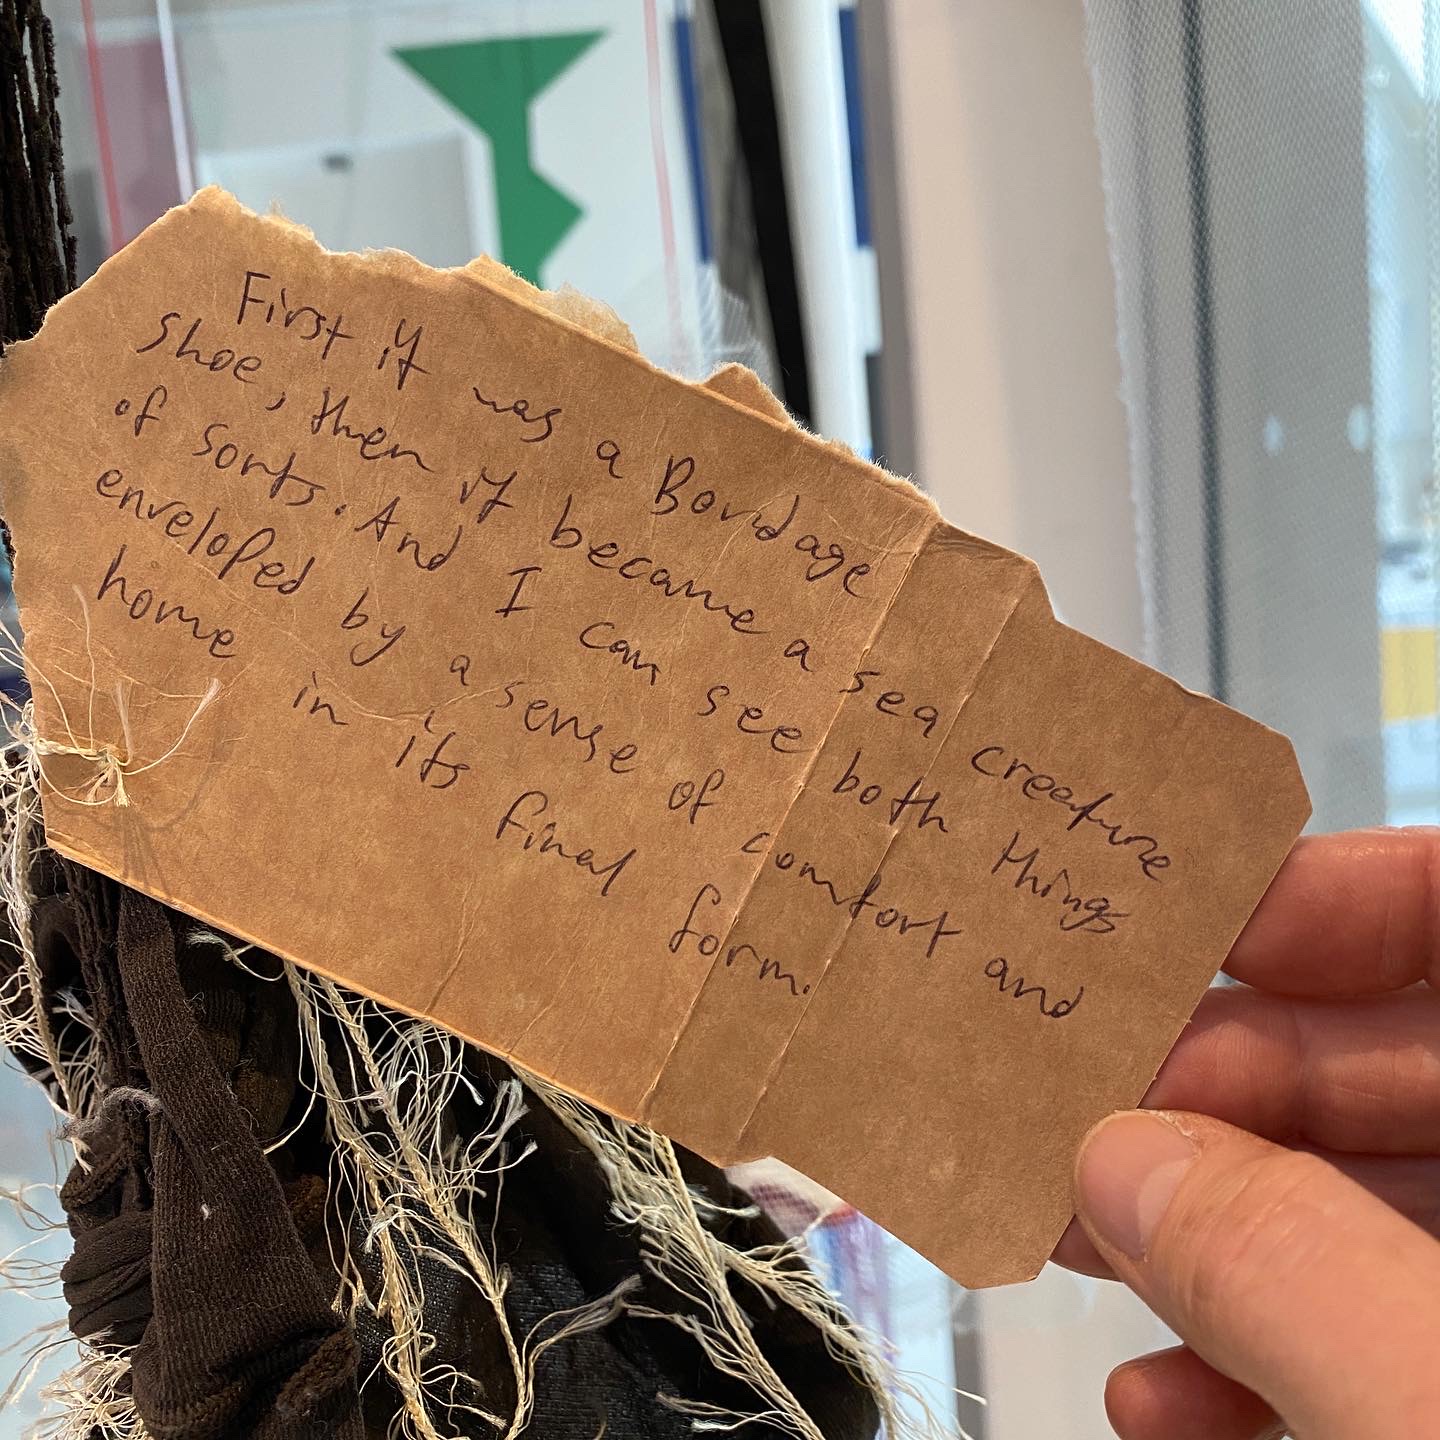 First it was a Bondage
shoe, then it became a sea creature
of sorts. And I can see both things
enveloped by a sense of comfort and
home in its final form.